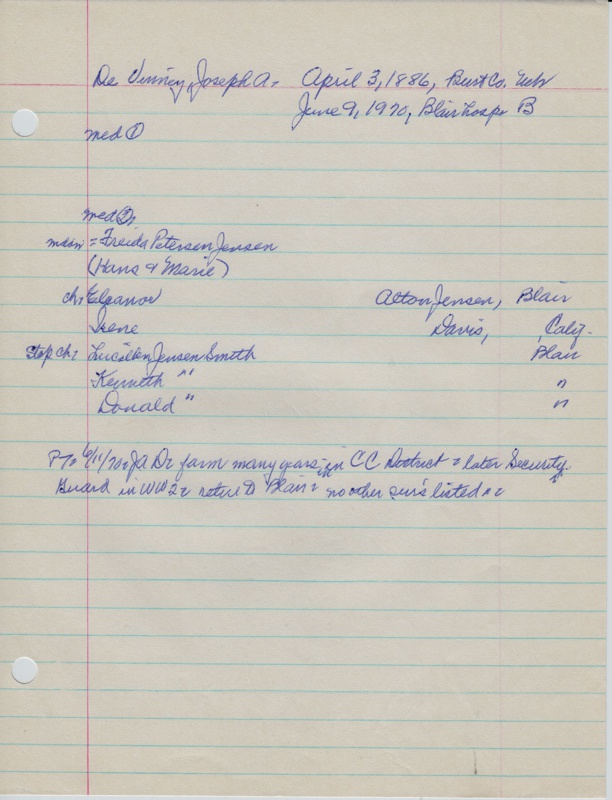 De Vinney, Joseph A. April 3, 1886, Burt Co. Neb
June 9, 1970, Blair hosp. B
med ①
med ②
= Freida Petersen Jensen
(Hans & Marie)
ch: Eleanor Alton Jensen, Blair
Irene Davis, Calif.
Step ch: Jensen Smith Blair
Kenneth " "
Donald " "
PT: 6/11/70: farm many years in CC District & later Security
Guard in WW2 & retired Blair: no other surs listed